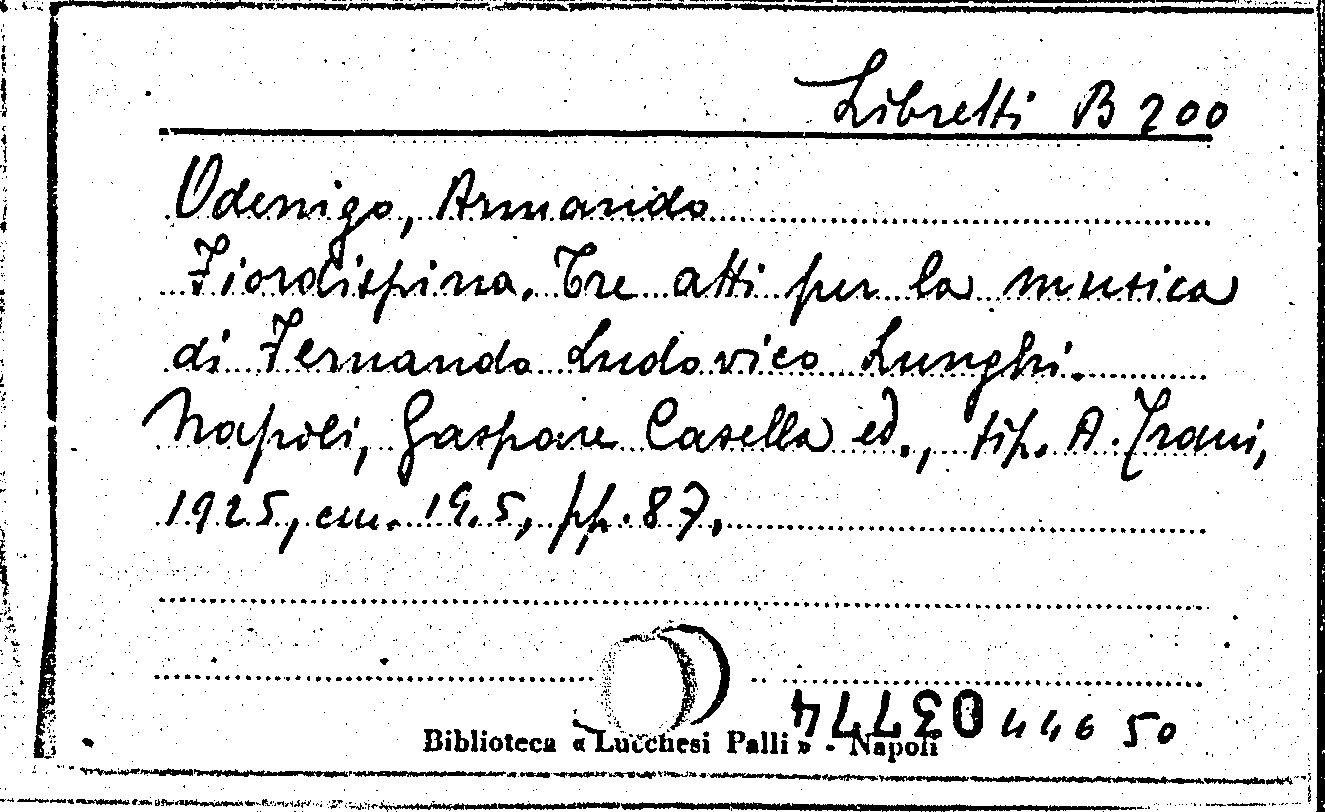 Libretti B 200
Odenigo, Armando
Fiordispina. Tre atti per la musica
di Fernando Ludovico Lunghi.
Napoli, Gaspare Casella ed., tip. A. Trani,
1925, cm. 19.5, pp. 87.
03774 446 50
Biblioteca « Lucchesi Palli » - Napoli